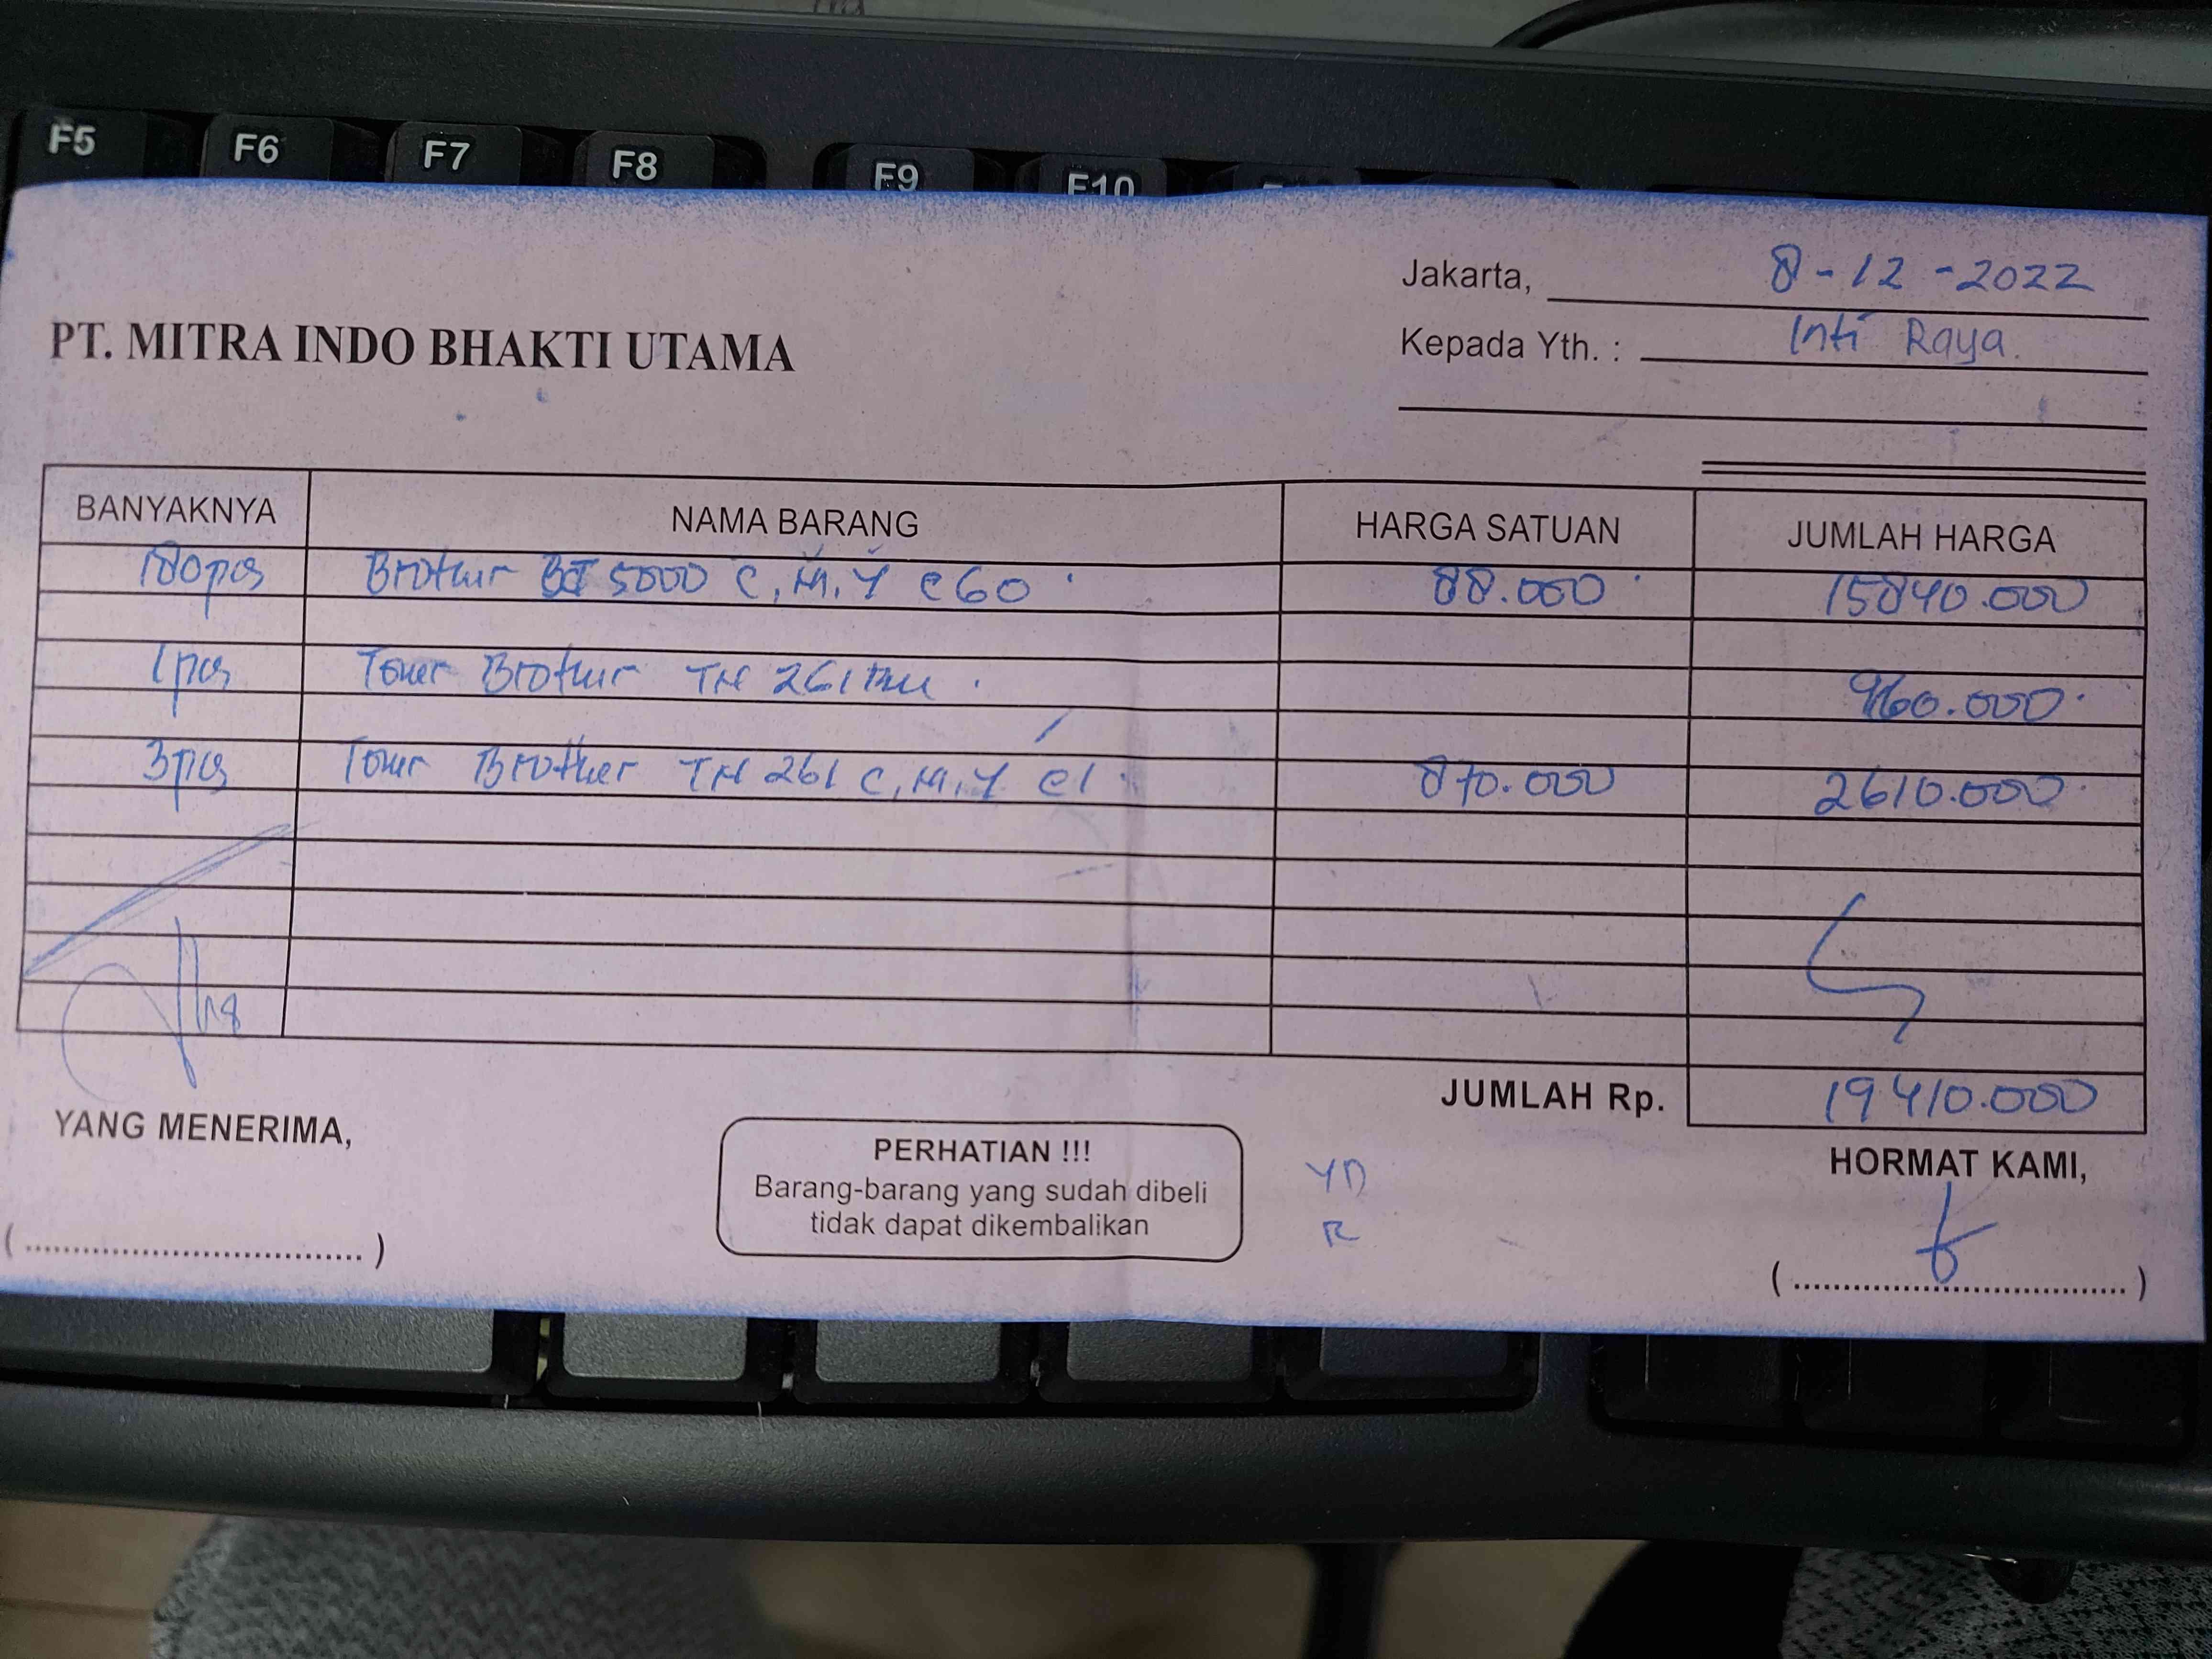 F5 F6 F7 F8 F9 F10
Jakarta, 8-12-2022
PT. MITRA INDO BHAKTI UTAMA
Kepada Yth. : Inti Raya.
BANYAKNYA NAMA BARANG HARGA SATUAN JUMLAH HARGA
180pcs Brother BT 5000 C, M, Y @60 88.000 15840.000
1pcs Toner Brother TN 261 960.000
3pcs Toner Brother TN 261 C, M, Y @1 870.000 2610.000
JUMLAH Rp. 19410.000
YANG MENERIMA,
PERHATIAN !!!
Barang-barang yang sudah dibeli
tidak dapat dikembalikan
YD
R
HORMAT KAMI,